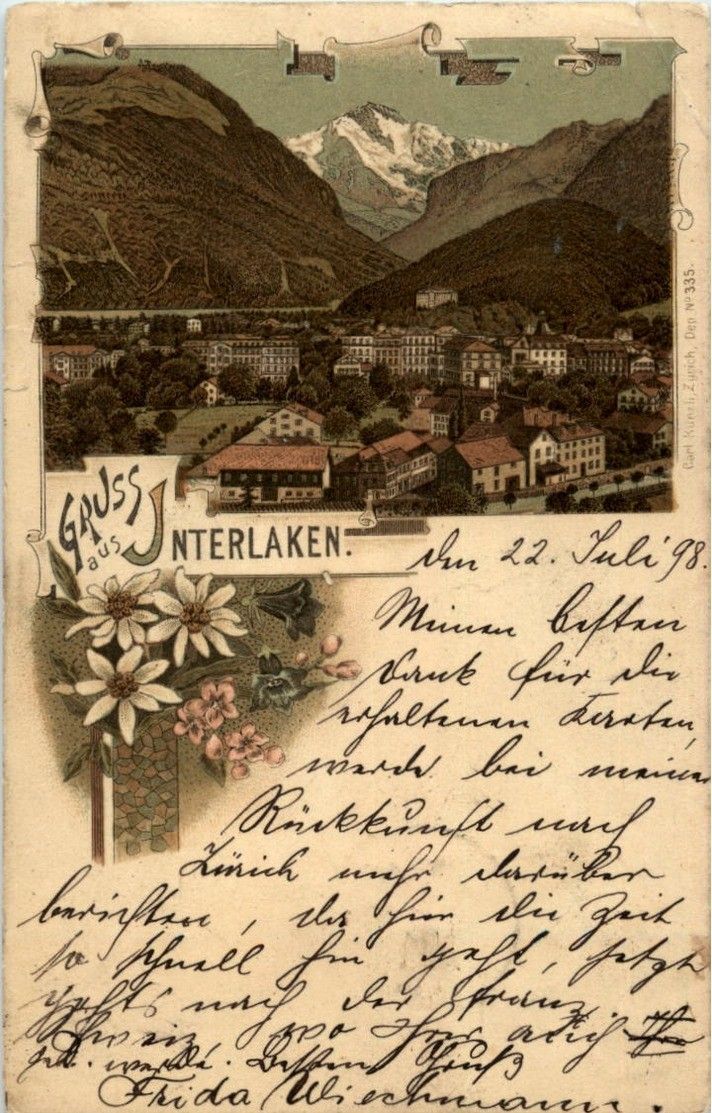 GRUSS
aus INTERLAKEN.
Carl Künzli, Zürich, Dep. Nº 335.
den 22. Juli 98.
Meinen besten
Dank für die
erhaltenen Karten,
werde bei meiner
Rückkunft nach
Zürich mehr darüber
berichten, da hier die Zeit
so schnell hin geht, jetzt
gehts nach der franz.
Schweiz, wo auch
werde. Besten Gruß
Frida Wiechmann.